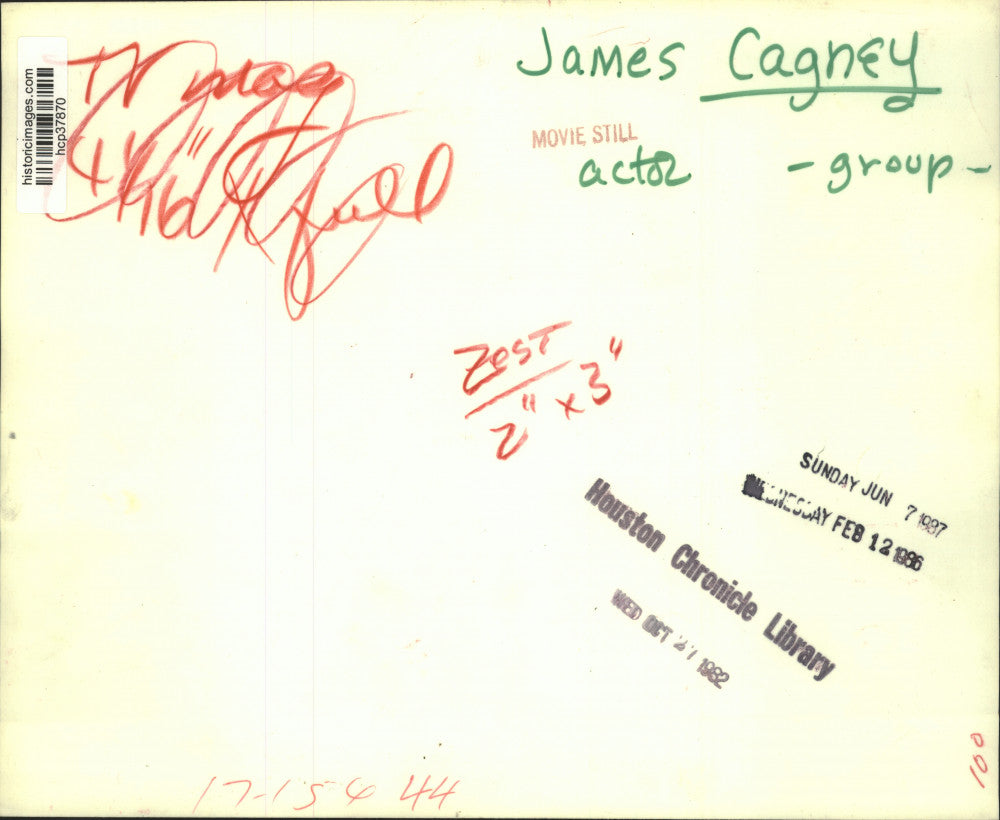 historicimages.com
hcp37870
TV mag
full
James Cagney
MOVIE STILL
actor
- group -
Zest
2" x 3"
SUNDAY JUN 7 1987
WEDNESDAY FEB 12 1986
Houston Chronicle Library
WED OCT 27 1982
17-154 44
100